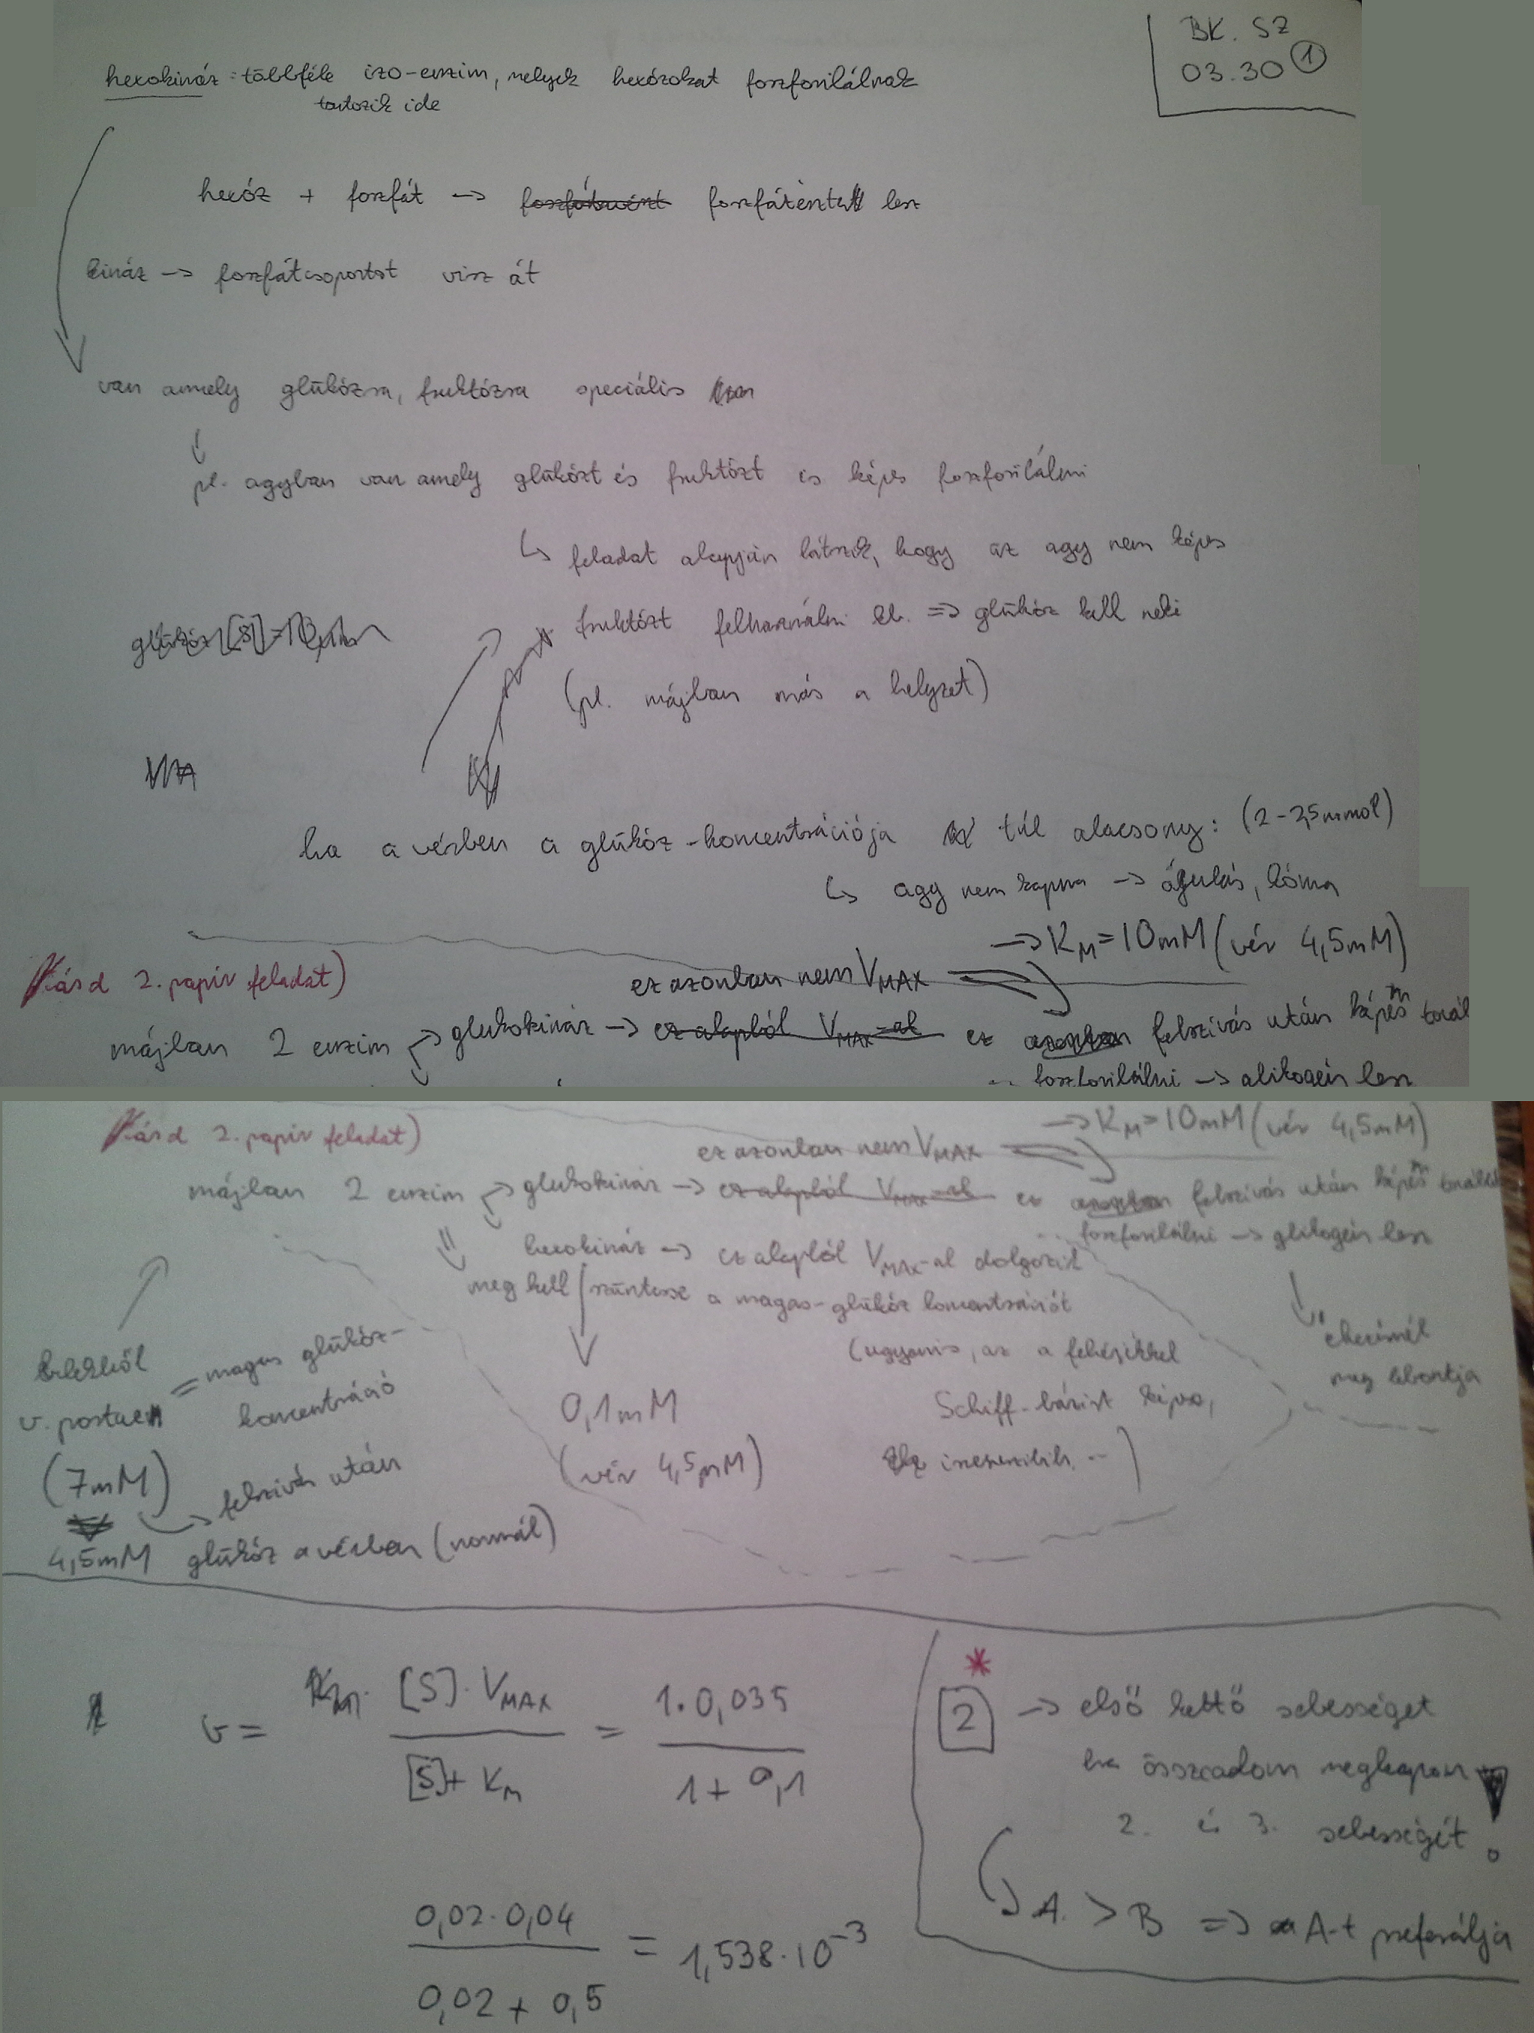 BK. SZ
03.30 ①
hexokináz: többféle izo-enzim, melyek hexózokat foszforilálnak
tartozik ide
hexóz + foszfát → foszfátészter lesz
kináz → foszfátcsoportot visz át
van amely glükózra, fruktózra speciális
pl. agyban van amely glükózt és fruktózt is képes foszforilálni
↳ feladat alapján látszik, hogy az agy nem képes
fruktózt felhasználni kb. => glükóz kell neki
(pl. májban más a helyzet)
glükóz [S]=10
ha a vérben a glükóz-koncentrációja túl alacsony: (2-2,5mmol)
↳ agy nem kapna → ájulás, kóma
→ KM=10mM (vér 4,5mM)
2. papír feladat)
ez azonban nem VMAX
májban 2 enzim glukokináz → ez alapból VMAX-al ez azonban felszívás után képes
foszforilálni → glikogén lesz
2. papír feladat)
→ KM=10mM (vér 4,5mM)
ez azonban nem VMAX
májban 2 enzim → glukokináz → ez alapból VMAX-al ez azonban felszívás után képes
foszforilálni → glikogén lesz
hexokináz → ez alapból VMAX-al dolgozik
meg kell szüntesse a magas-glükóz koncentrációt
(ugyanis, az a fehérjékkel
Schiff-bázist képez,
0,1mM
(vér 4,5mM)
éhezésnél
meg lebontja
v. portaen = magas glükóz-
koncentráció
(7mM)
felszívás után
4,5mM glükóz a vérben (normál)
v = [S]·VMAX / [S]+KM = 1·0,035 / 1+0,1
0,02·0,04 / 0,02+0,5 = 1,538·10-3
*
2 → első kettő sebességet
ha összeadom megkapom
2. és 3. sebességét!
A > B => A-t preferálja